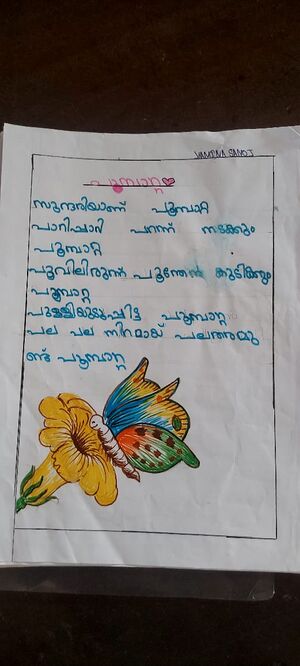 പൂമ്പാറ്റ
സുന്ദരിയാണ് പൂമ്പാറ്റ
പാറിപ്പാറി പറന്ന് നടക്കും
പൂമ്പാറ്റ
പൂവിലിരുന്ന് പൂന്തേൻ കുടിക്കും
പൂമ്പാറ്റ
പുള്ളിയുടുപ്പിട്ട പൂമ്പാറ്റ
പല പല നിറമായ് പലതരമു
ണ്ട് പൂമ്പാറ്റ